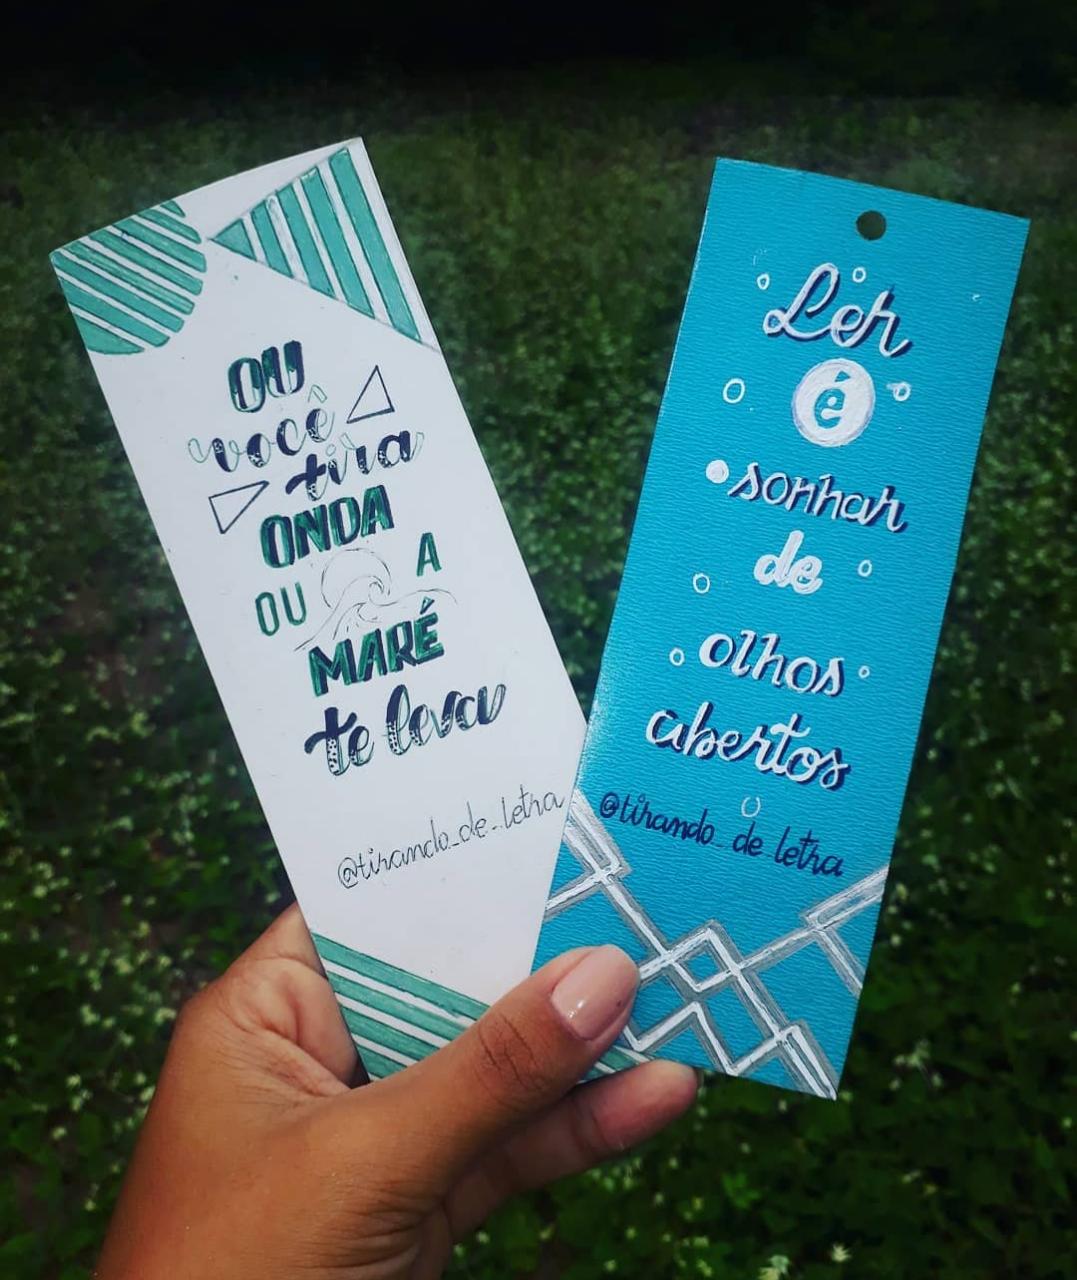 OU
você
tira
ONDA
OU A
MARÉ
te leva
@tirando_de_letra
Ler
é
sonhar
de
olhos
abertos
@tirando_de letra